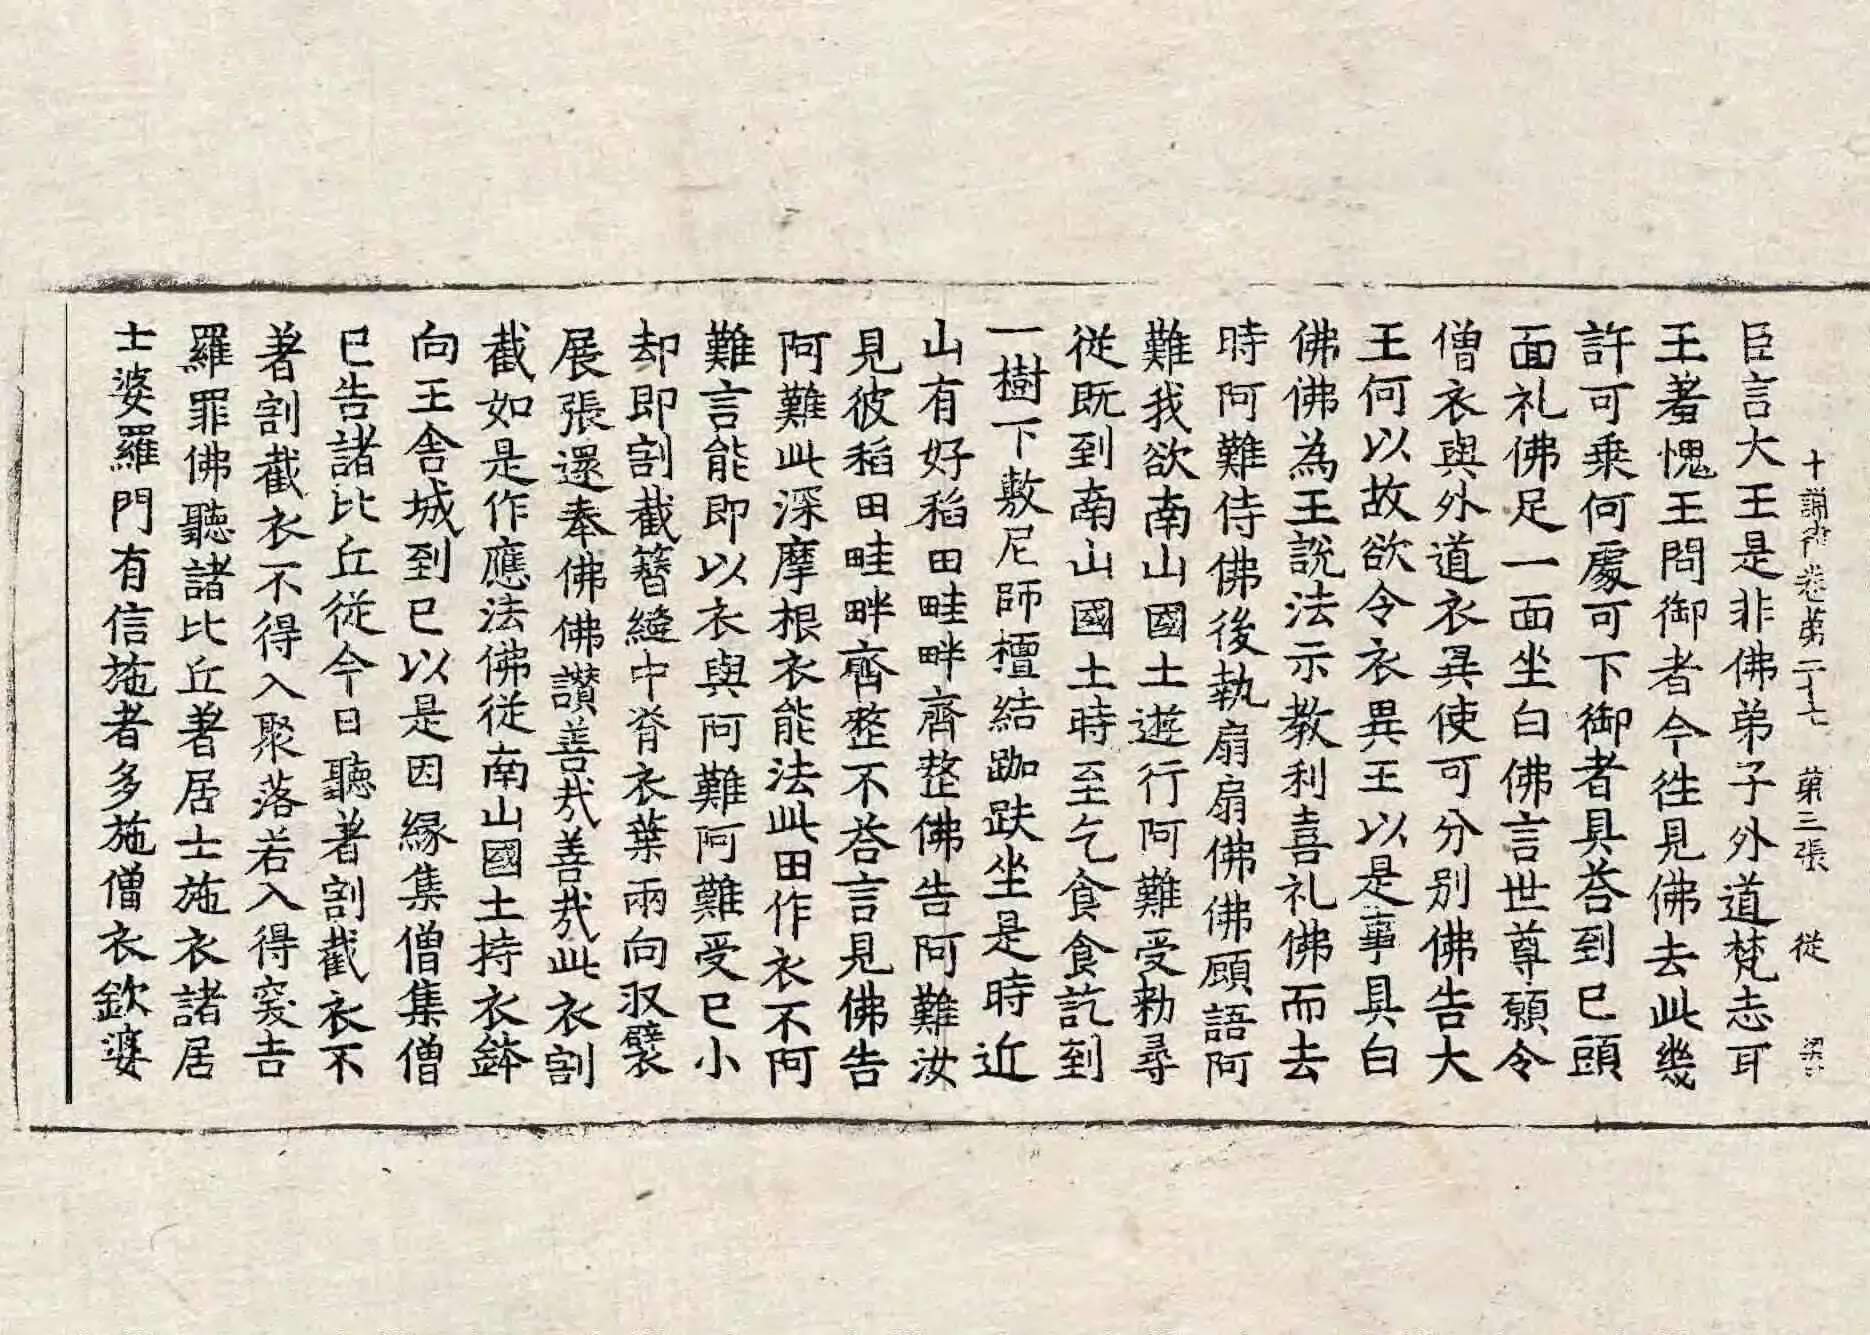 十誦律卷第二十七 第三張 従
臣言大王是非佛弟子外道梵志耳
王著愧王問御者今徃見佛去此幾
許可乗何處可下御者具荅到已頭
面礼佛足一面坐白佛言世尊願令
僧衣與外道衣異使可分別佛告大
王何以故欲令衣異王以是事具白
佛佛為王説法示教利喜礼佛而去
時阿難侍佛後執扇扇佛佛顧語阿
難我欲南山國土遊行阿難受勑尋
従既到南山國土時至乞食食訖到
一樹下敷尼師檀結跏趺坐是時近
山有好稻田畦畔齊整佛告阿難汝
見彼稻田畦畔齊整不荅言見佛告
阿難此深摩根衣能法此田作衣不阿
難言能即以衣與阿難阿難受已小
却即割截簪縫中脊衣葉兩向収襞
展張還奉佛佛讃善㢤善㢤此衣割
截如是作應法佛従南山國土持衣鉢
向王舍城到已以是因縁集僧集僧
已告諸比丘従今日聽著割截衣不
著割截衣不得入聚落若入得突吉
羅罪佛聽諸比丘著居士施衣諸居
士婆羅門有信施者多施僧衣欽婆